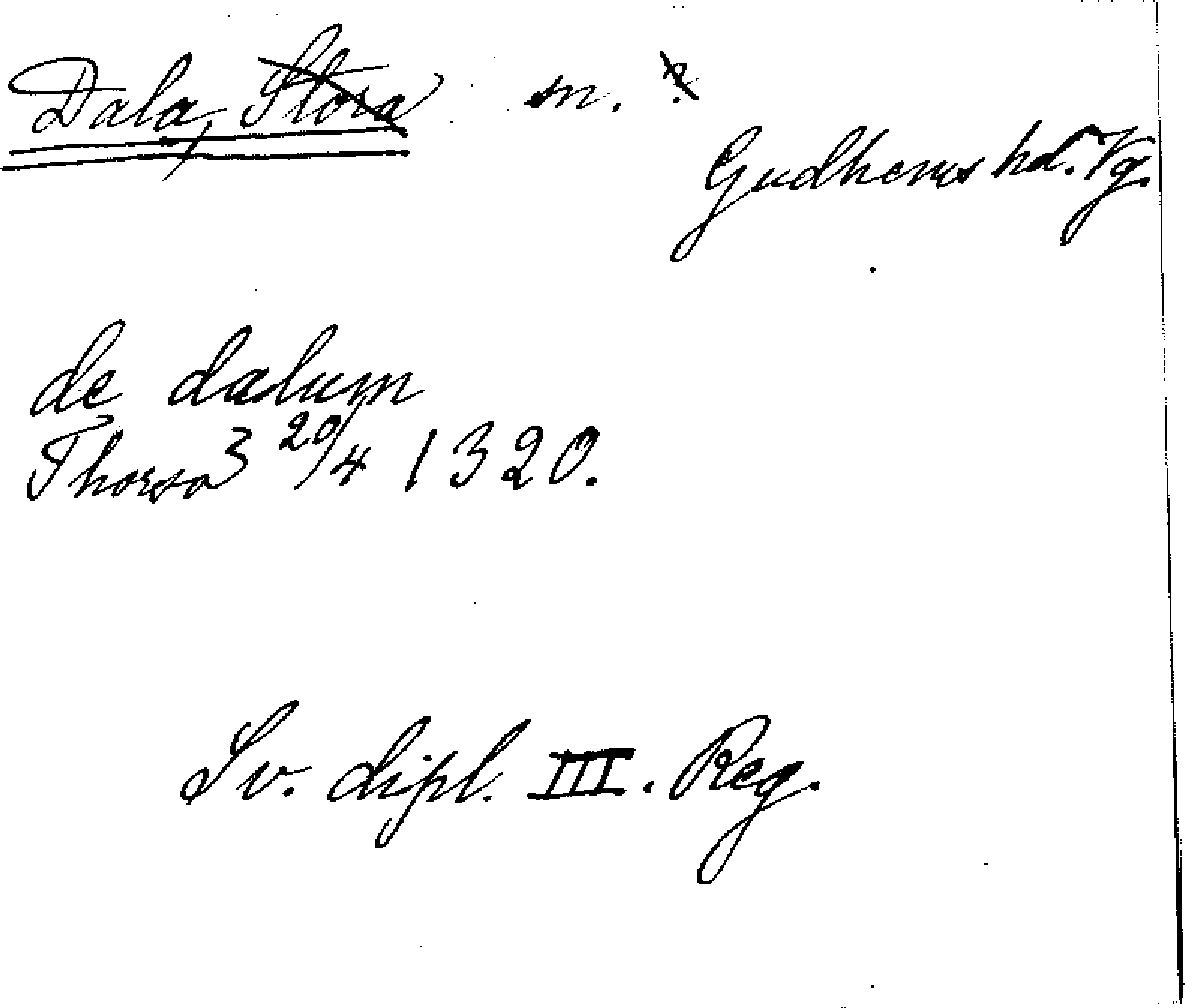 Dala, Stora m. ?
Gudhems hd. Vg.
de dalum
Thorsö 20/4 1320.
Sv. dipl. III. Reg.